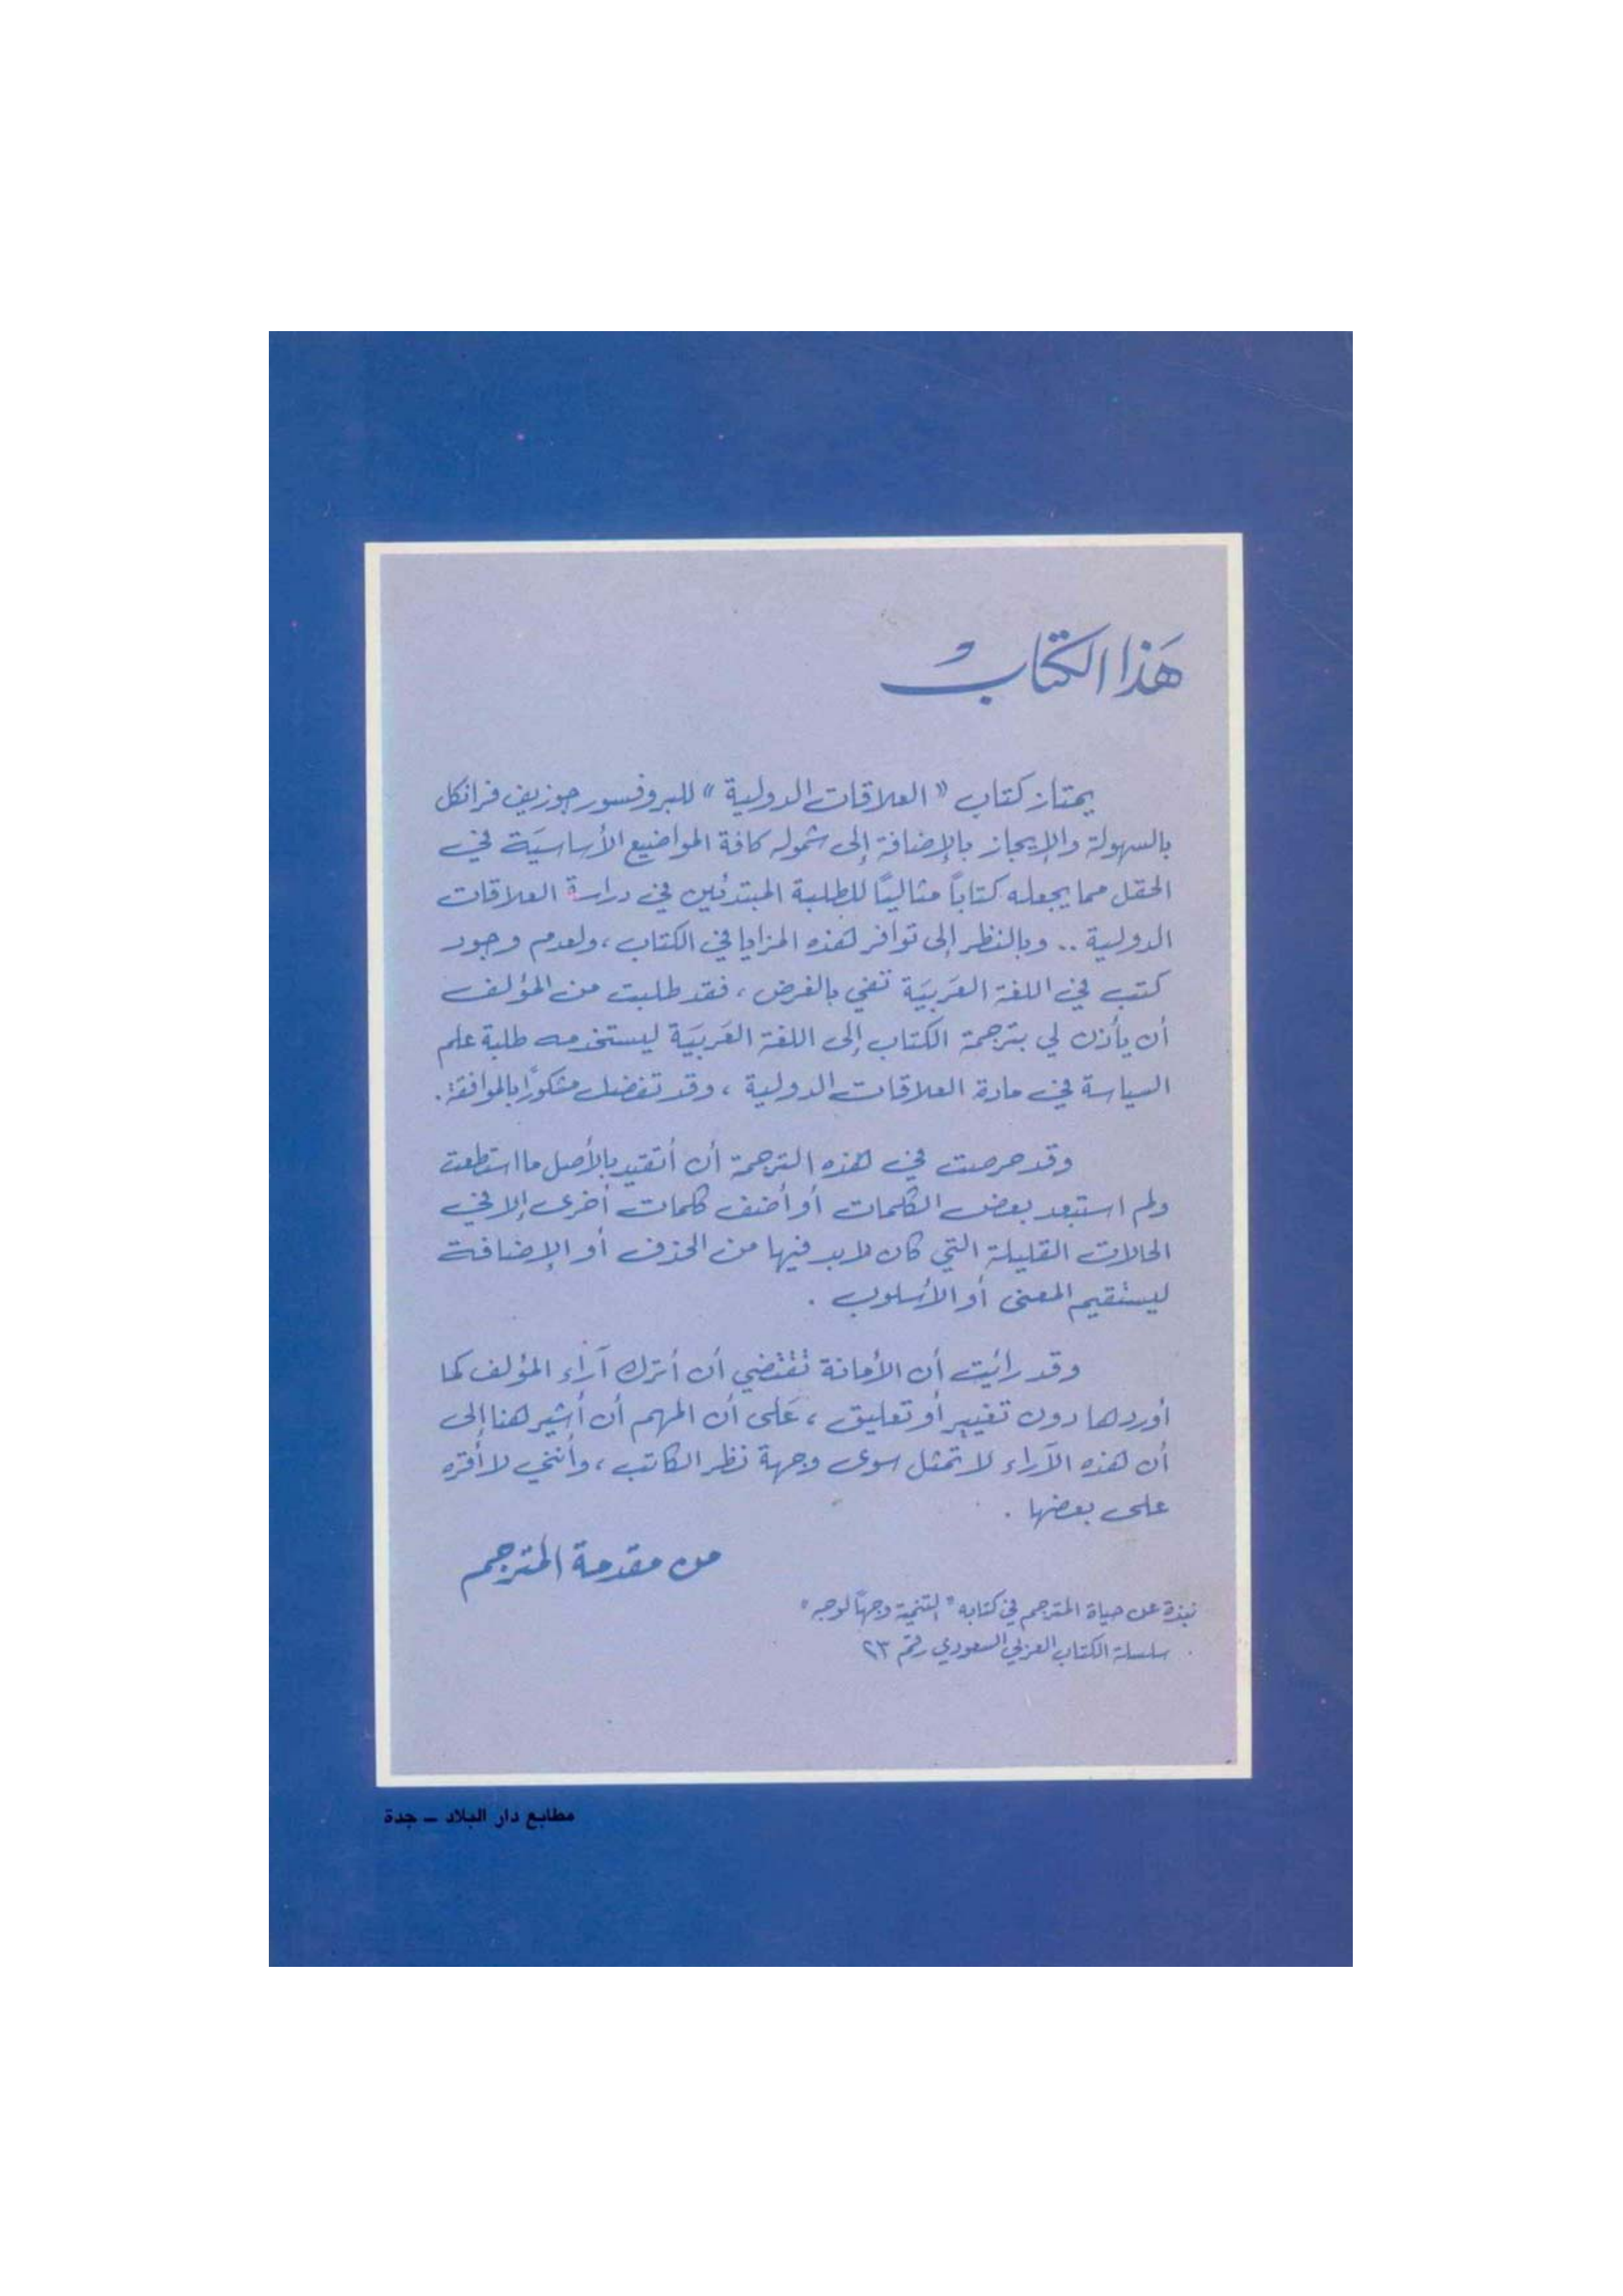 هَذا الكتابُ
يمتاز كتاب «العلاقات الدولية» للبروفسور جوزيف فرانكل
بالسهولة والإيجاز بالإضافة إلى شموله كافة المواضيع الأساسيَة في
الحقل مما يجعله كتاباً مثاليًا للطلبة المبتدئين في دراسة العلاقات
الدولية .. وبالنظر إلى توافر هذه المزايا في الكتاب ، ولعدم وجود
كتب في اللغة العَربيَة تفي بالغرض ، فقد طلبت من المؤلف
أن يأذن لي بترجمة الكتاب إلى اللغة العَربيَة ليستخدمه طلبة علم
السياسة في مادة العلاقات الدولية ، وقد تفضل مشكورًا بالموافقة .
وقد حرصت في هذه الترجمة أن أتقيد بالأصل ما استطعت
ولم استبعد بعض الكلمات أو أضف كلمات أخرى إلا في
الحالات القليلة التي كان لابد فيها من الحذف أو الإضافة
ليستقيم المعنى أو الأسلوب .
وقد رأيت أن الأمانة تقتضي أن أترك آراء المؤلف كما
أوردها دون تغيير أو تعليق ، عَلى أن المهم أن أشير هنا إلى
أن هذه الآراء لا تمثل سوى وجهة نظر الكاتب ، وأنني لا أقره
على بعضها .
من مقدمة المترجم
نبذة عن حياة المترجم في كتابه "التنمية وجهًا لوجه"
سلسلة الكتاب العربي السعودي رقم ٢٣
مطابع دار البلاد ـ جدة